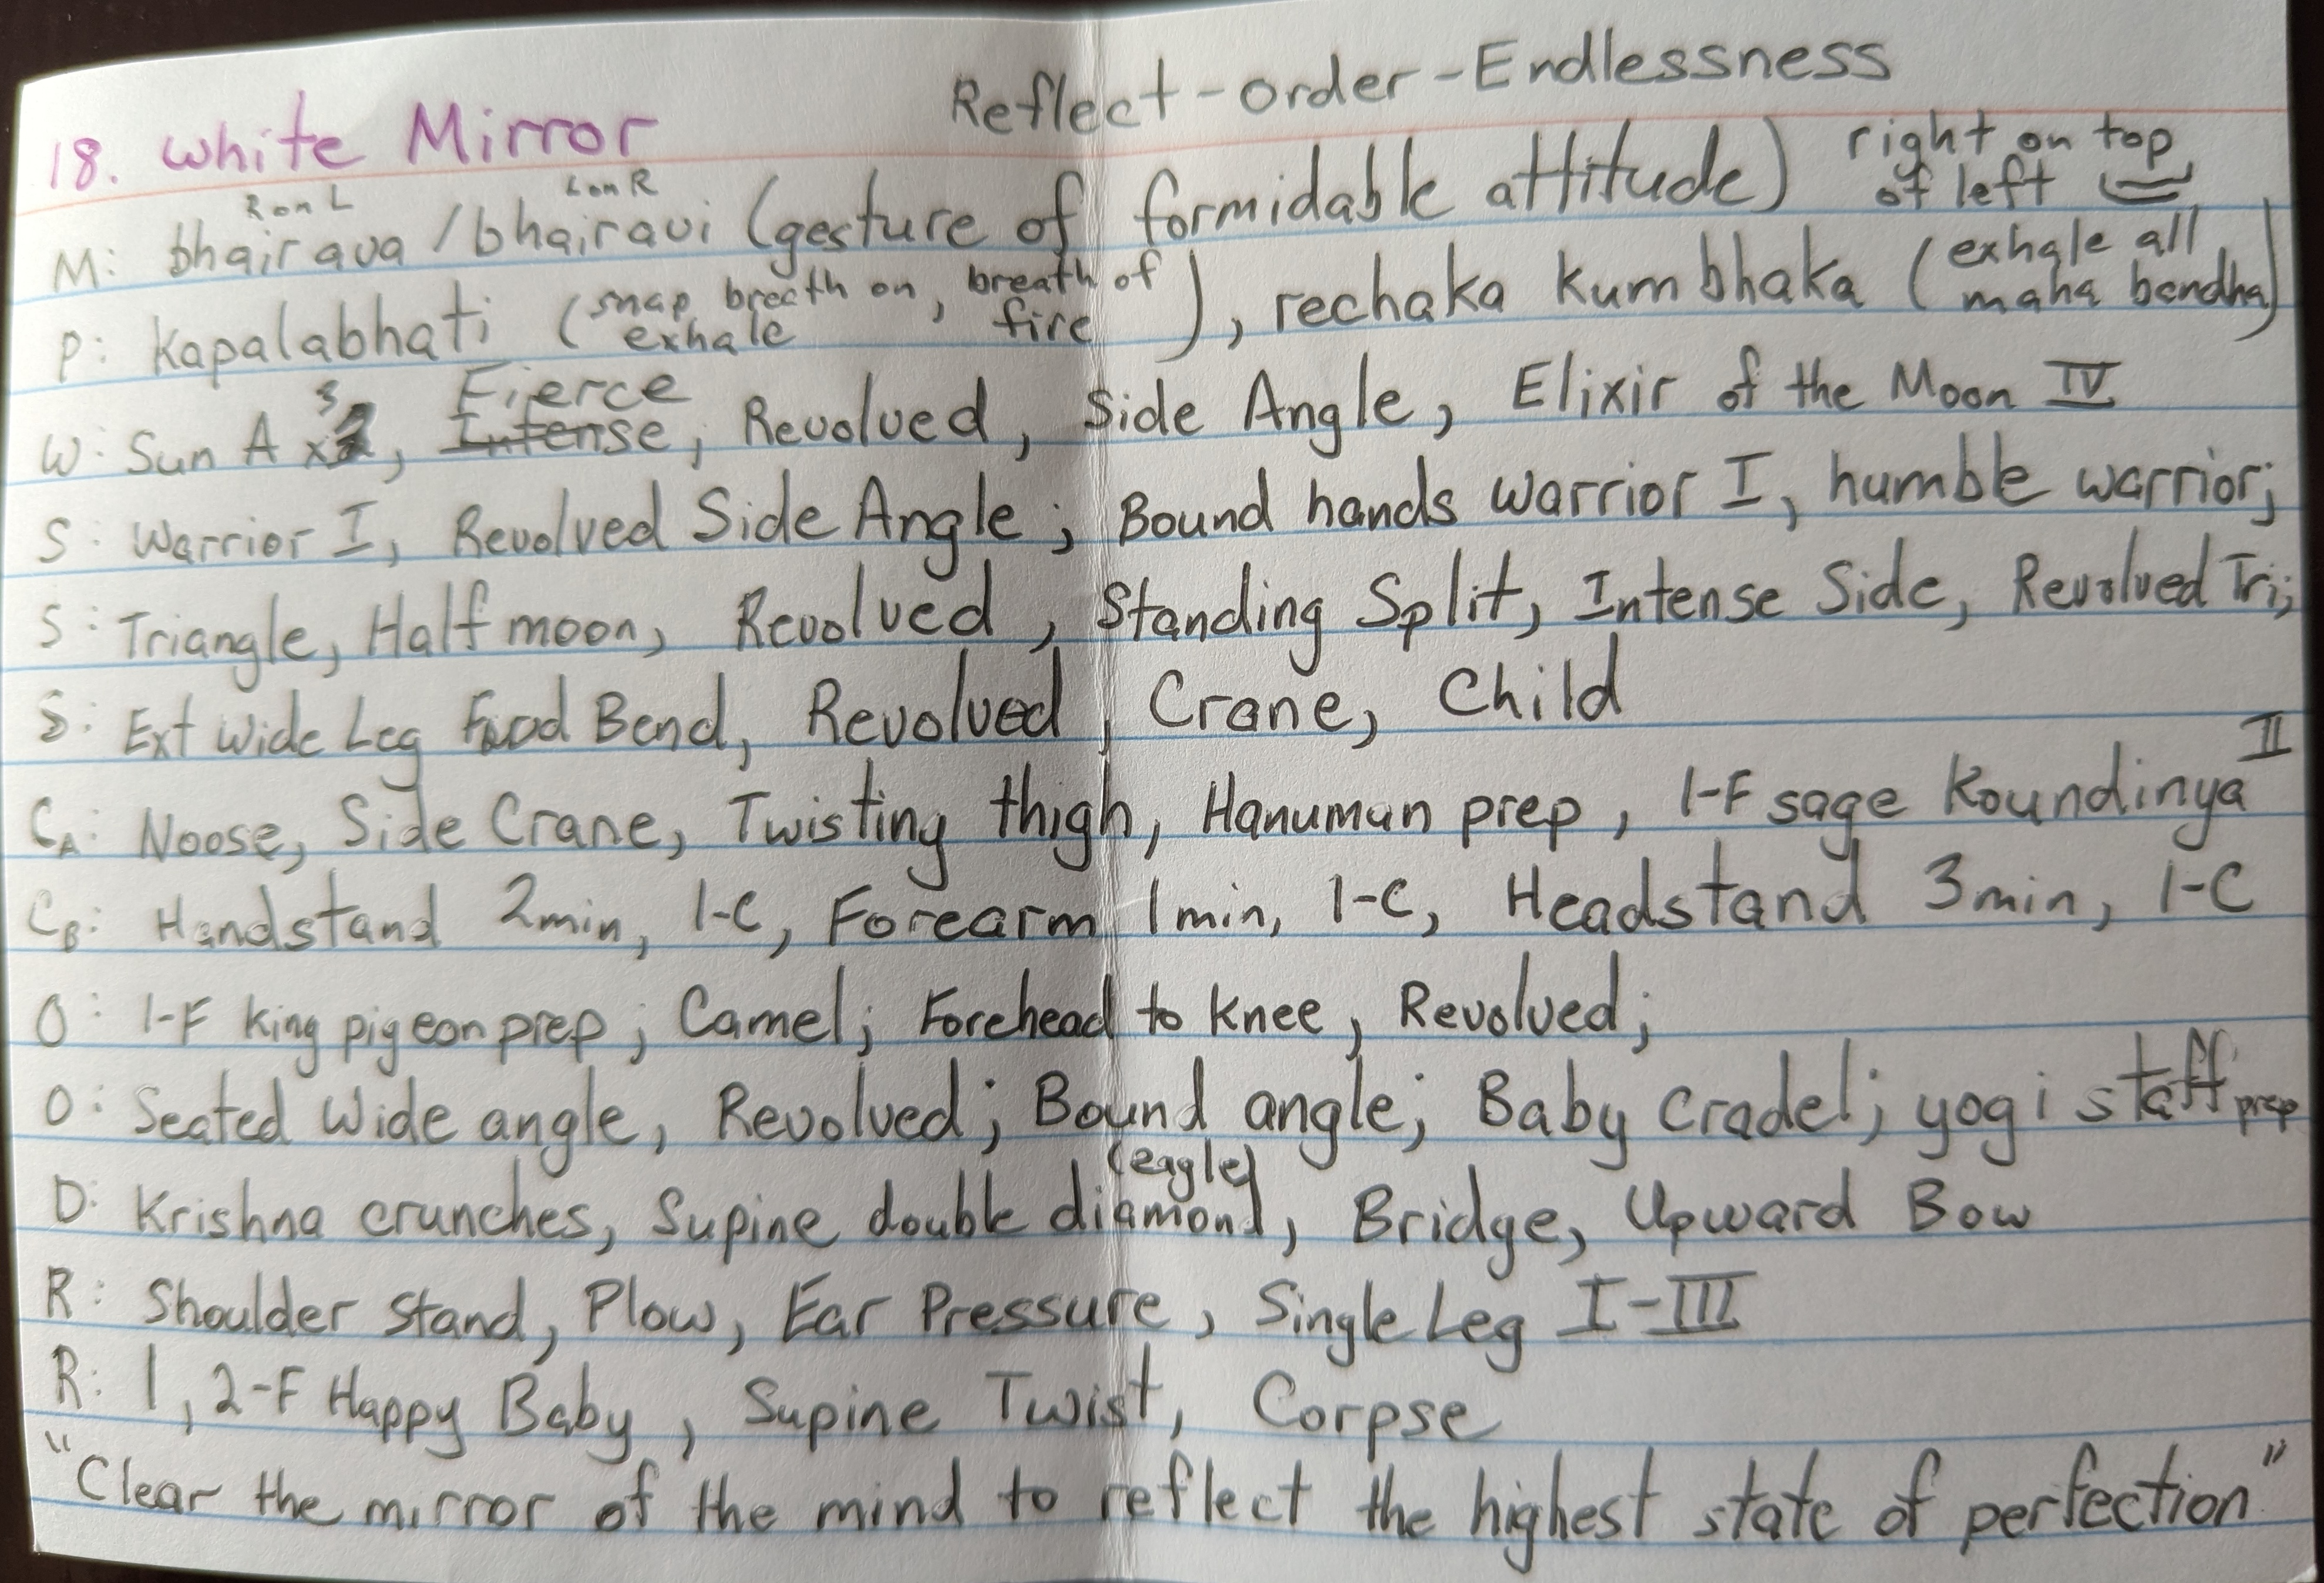 18. White Mirror Reflect-order-Endlessness
R on L L on R
M: bhairava / bhairavi (gesture of formidable attitude) right on top of left
P: Kapalabhati (snap breath on exhale, breath of fire), rechaka kumbhaka (exhale all, maha bandha)
W: Sun A x3, Fierce Intense, Revolved, Side Angle, Elixir of the Moon IV
S: Warrior I, Revolved Side Angle; Bound hands warrior I, humble warrior;
S: Triangle, Half moon, Revolved, Standing Split, Intense Side, Revolved Tri;
S: Ext Wide Leg Fwd Bend, Revolved, Crane, Child
CA: Noose, Side Crane, Twisting thigh, Hanuman prep, 1-F sage Koundinya II
CB: Handstand 2min, 1-C, Forearm 1min, 1-C, Headstand 3min, 1-C
O: 1-F king pigeon prep; Camel; Forehead to knee, Revolved;
O: Seated Wide angle, Revolved; Bound angle; Baby Cradel; yogi staff prep
D: Krishna crunches, Supine double diamond (eagle), Bridge, Upward Bow
R: Shoulder Stand, Plow, Ear Pressure, Single Leg I-III
R: 1, 2-F Happy Baby, Supine Twist, Corpse
"Clear the mirror of the mind to reflect the highest state of perfection"